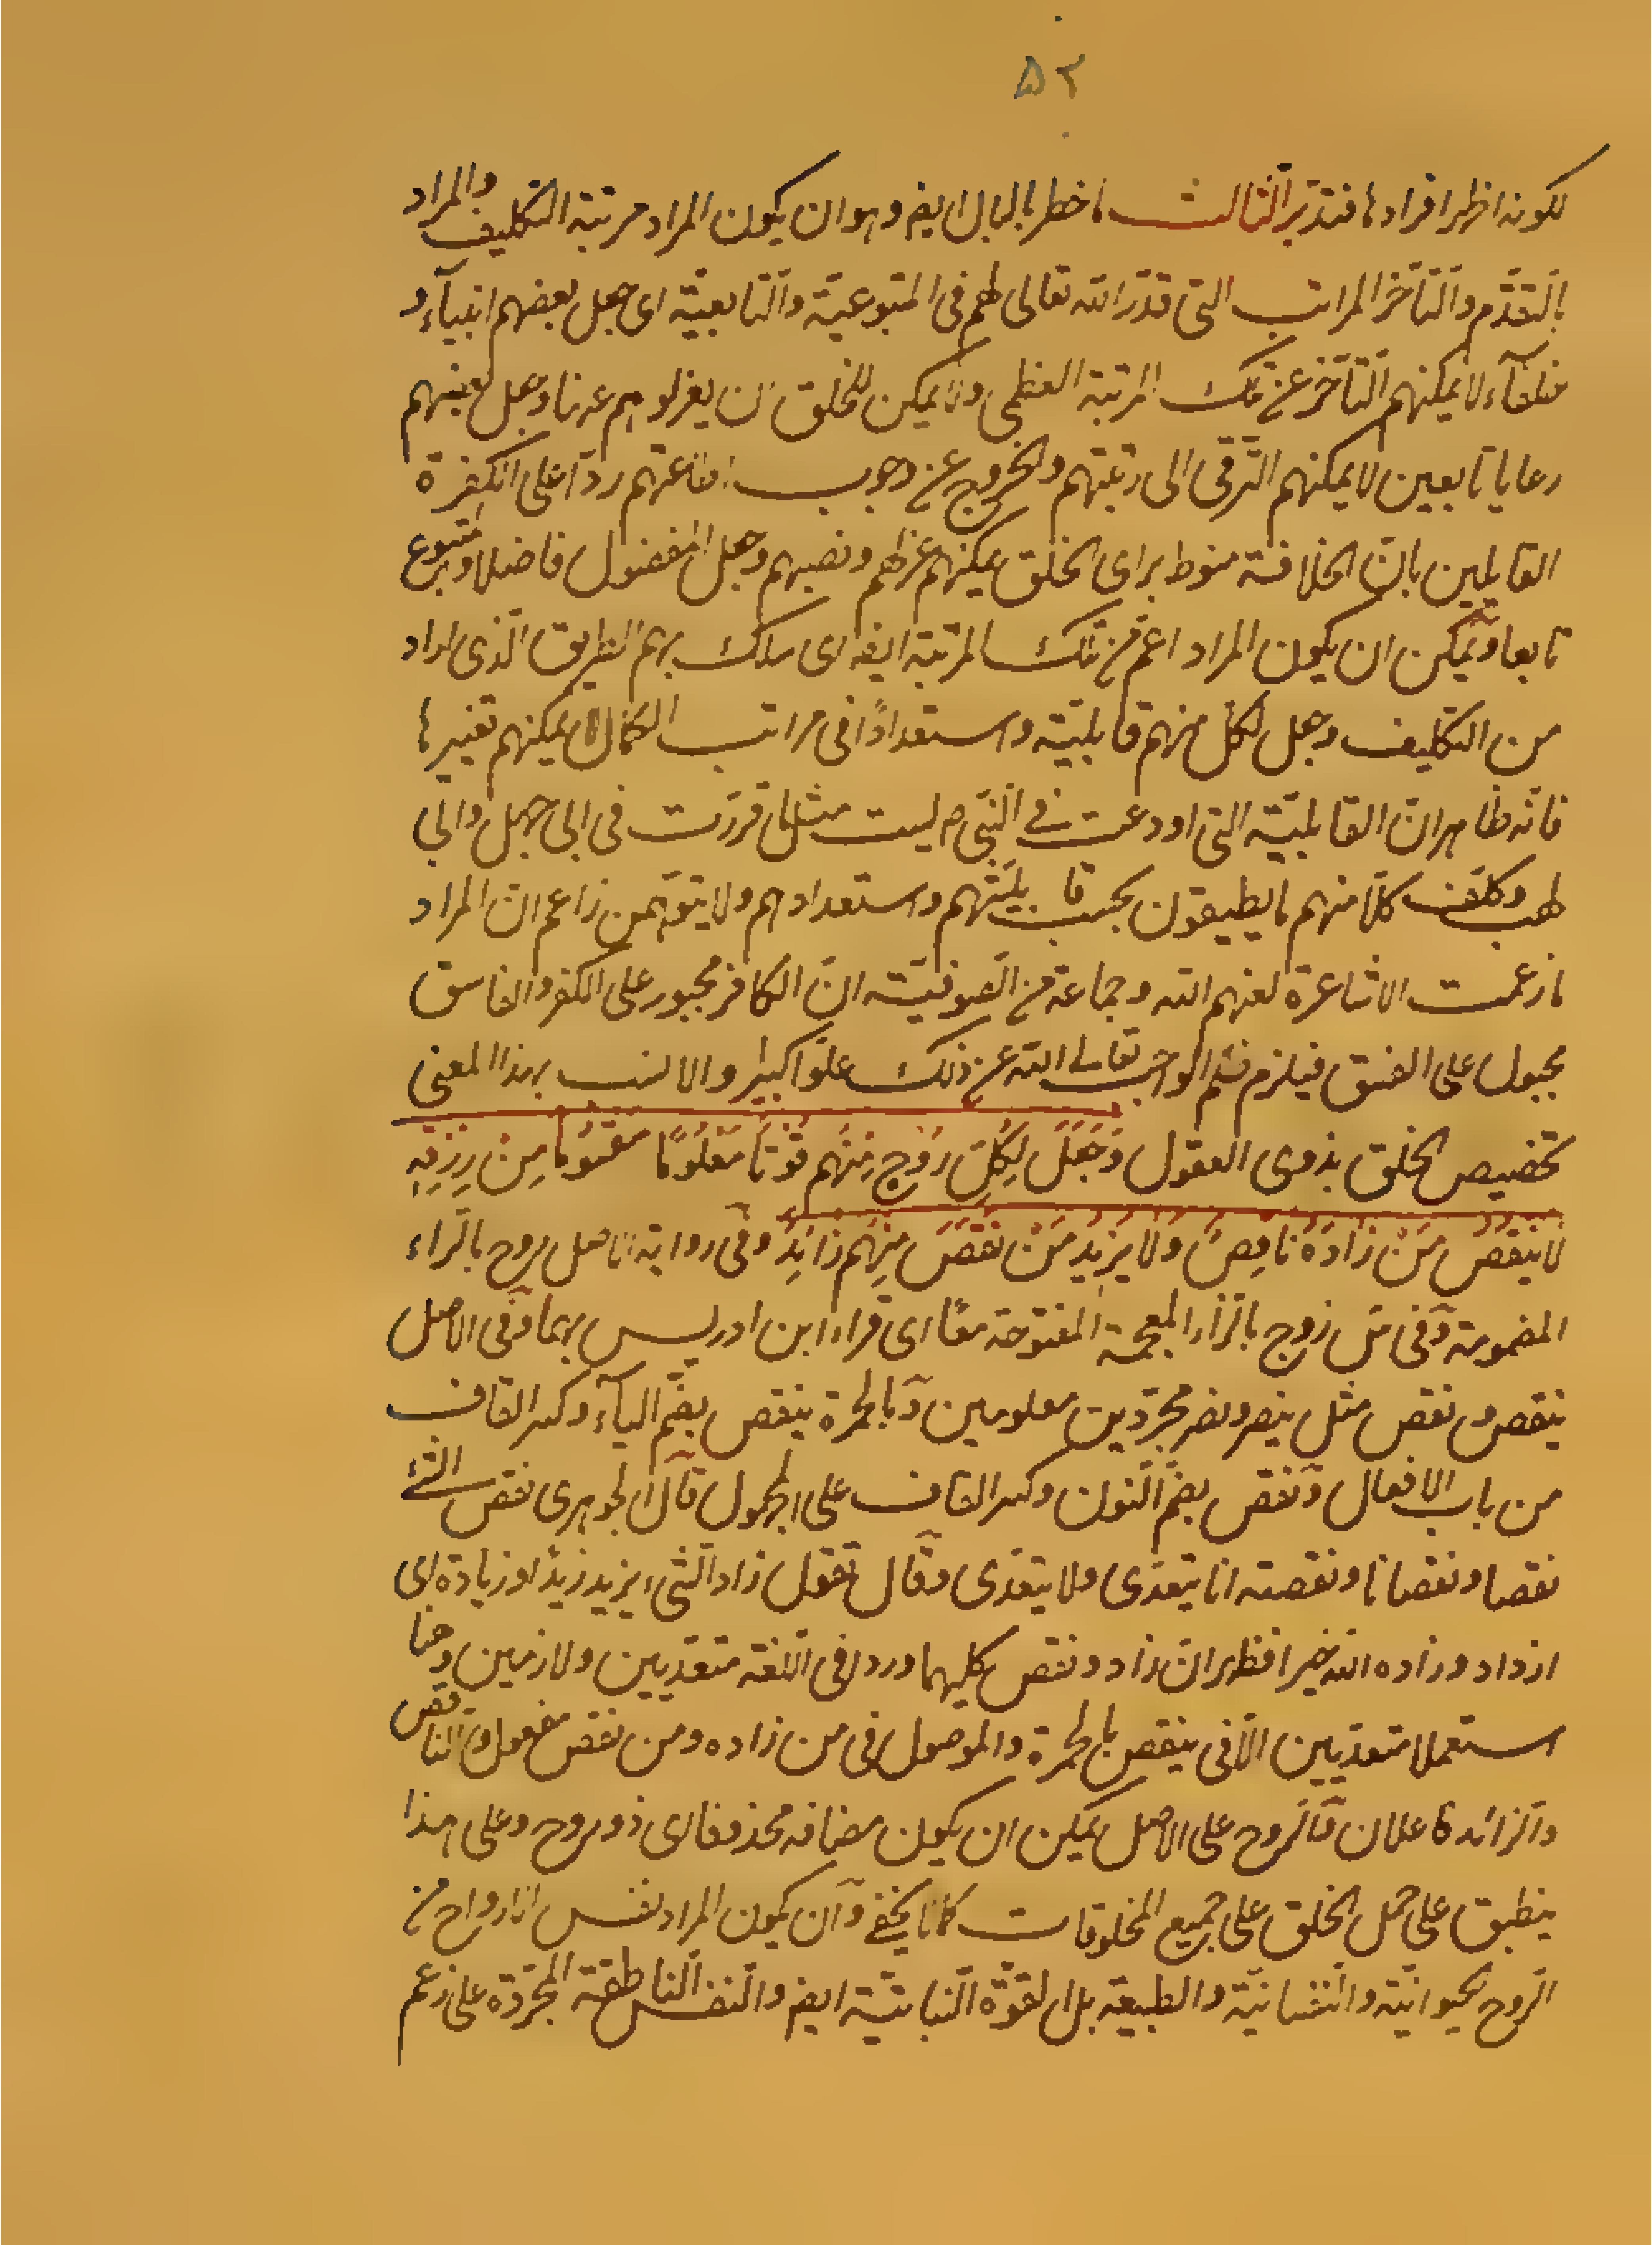 ۵۲
لكونه اظهر افرادها فتدبر الثالث ما خطر بالبال ايض وهو ان يكون المراد مرتبة التكليف والمراد
بالتقدّم والتأخر المراتب التى قدّر الله تعالى لهم فى المتبوعيّة والتابعيّة اى جعل بعضهم انبياء و
خلفآء لا يمكنهم التأخر عن تلك المرتبة العظمى ولا يمكن للخلق ان يعزلوهم عنها وجعل بعضهم
رعايا تابعين لا يمكنهم الترقى الى رتبتهم والخروج عن وجوب اطاعتهم ردّا على الكفرة
القايلين بانّ الخلافة منوط براى الخلق يمكنهم عزلهم ونصبهم وجعل المفضول فاضلا ومتبوع
تابعا ويمكن ان يكون المراد اعم من تلك المرتبة ايضه اى سلك بهم الطريق الّذى اراد
من التكليف وجعل لكلّ منهم قابليّة واستعدادًا فى مراتب الكمال لا يمكنهم تغييرها
فانّه ظاهر انّ القابليّة التى اودعت فى النّبى ص ليست مثل ما قرّرت فى ابى جهل وابى
لهب وكلّف كلّا منهم ما يطيقون بحسب قابليّتهم واستعدادهم ولا يتوهّمن زاعم انّ المراد
ما زعمت الاشاعرة لعنهم الله وجماعة من الصّوفيّة انّ الكافر مجبور على الكفر والفاسق
مجبول على الفسق فيلزم ظلم الواجب تعالى الله عن ذلك علوّا كبيرا والانسب بهذا المعنى
تخصيص الخلق بذوى العقول وَجَعَلَ لِكُلِّ رُوحٍ مِنْهُم قُوتًا مَعْلُومًا مَقْسُومًا مِنْ رِزْقِهِ
لا يَنْقُصُ مَنْ زادَهُ ناقِصٌ وَلا يَزيدُ مَنْ نَقَصَ مِنْهُم زائِدٌ وفى رواية الاصل روح بالرّاء
المضمومة وفى س زوج بالزّاء المعجمة المفتوحة معًا اى قراء ابن ادريس بهما وفى الاصل
ينقص ونقص مثل ينصر ونصر مجرّدين معلومين وبالحمرة ينقص بضمّ اليآء وكسر القاف
من باب الافعال ونقص بضمّ النّون وكسر القاف على المجهول قال الجوهرى نقص الشئ
نقصا ونقصانا ونقصته انا يتعدّى ولا يتعدّى وقال تقول زاد الشّىء يزيد زيدًا وزيادة اى
ازداد وزاده الله خيرا فظهر انّ زاد ونقص كليهما وردا فى اللغة متعدّيين ولازمين وهنا
استعملا متعدّيين الّا فى ينقص بالحمرة والموصول فى من زاده ومن نقص مفعول والنّاقص
والزّائد فاعلان والرّوح على الاصل يمكن ان يكون مضافه محذوفا اى ذو روح وعلى هذا
ينطبق على حمل الخلق على جميع المخلوقات كما لا يخفى وان يكون المراد نفس الارواح من
الرّوح الحيوانيّة والنّفسانيّة والطبيعيّة بل القوّة النّباتيّة ايض والنّفس النّاطقة المجرّدة على زعم